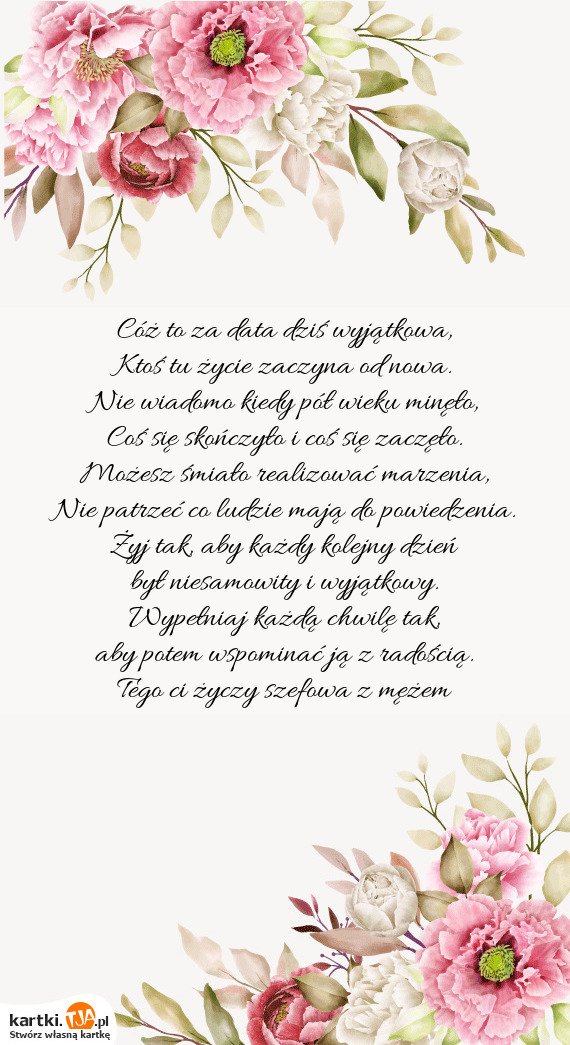 Cóż to za data dziś wyjątkowa,
Ktoś tu życie zaczyna od nowa.
Nie wiadomo kiedy pół wieku minęło,
Coś się skończyło i coś się zaczęło.
Możesz śmiało realizować marzenia,
Nie patrzeć co ludzie mają do powiedzenia.
Żyj tak, aby każdy kolejny dzień
był niesamowity i wyjątkowy.
Wypełniaj każdą chwilę tak,
aby potem wspominać ją z radością.
Tego ci życzy szefowa z mężem
kartki.TJA.pl
Stwórz własną kartkę